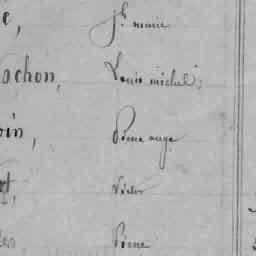 e, Jh marie
ochon, Louis michel,
oin, Pierre ange
Victor
Pierre